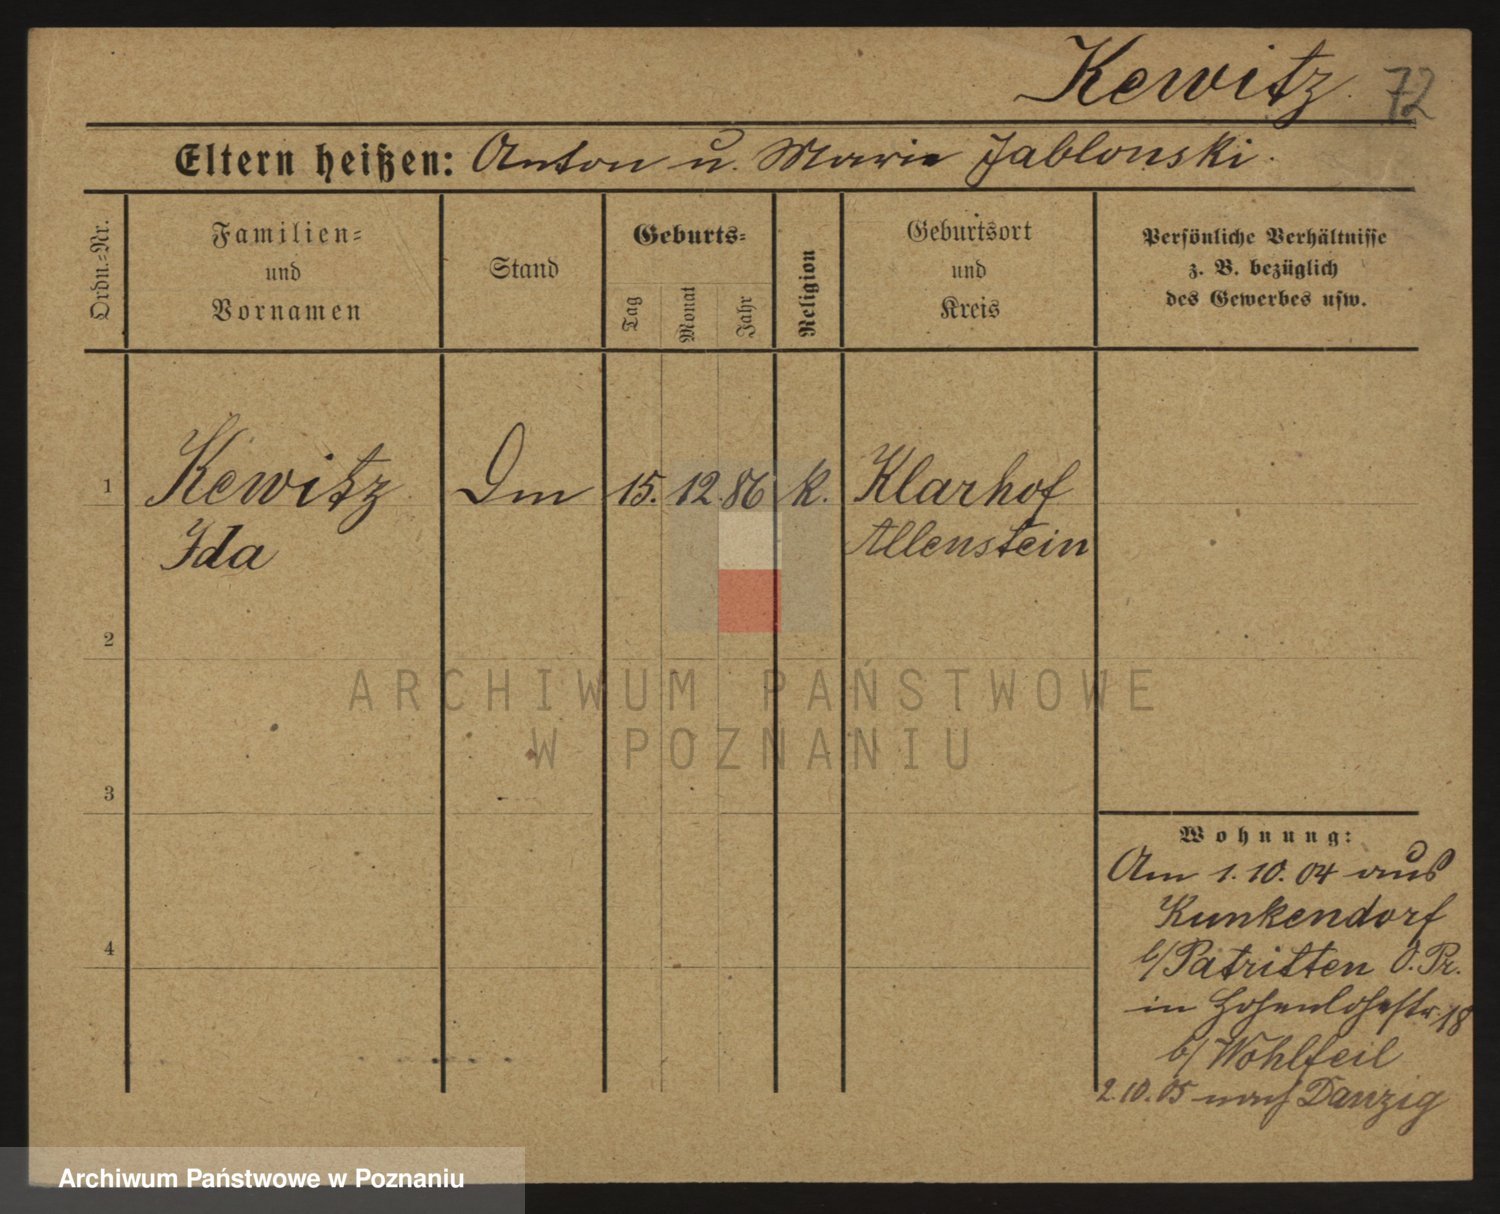 Kewitz. 72
Eltern heißen: Anton u. Marie Jablonski.
Ordn.-Nr.
Familien-
und
Vornamen
Stand
Geburts-
Tag
Monat
Jahr
Religion
Geburtsort
und
Kreis
Persönliche Verhältnisse
z. B. bezüglich
des Gewerbes usw.
1 Kewitz Dm 15. 12. 86 k. Klarhof
Ida Allenstein
2
ARCHIWUM PAŃSTWOWE
W POZNANIU
3
Wohnung:
Am 1. 10. 04 aus
Kunkendorf
b/Patritten O. Pr.
in Hohenlohestr. 18
b/ Wohlfeil
2. 10. 05 nach Danzig
4
Archiwum Państwowe w Poznaniu